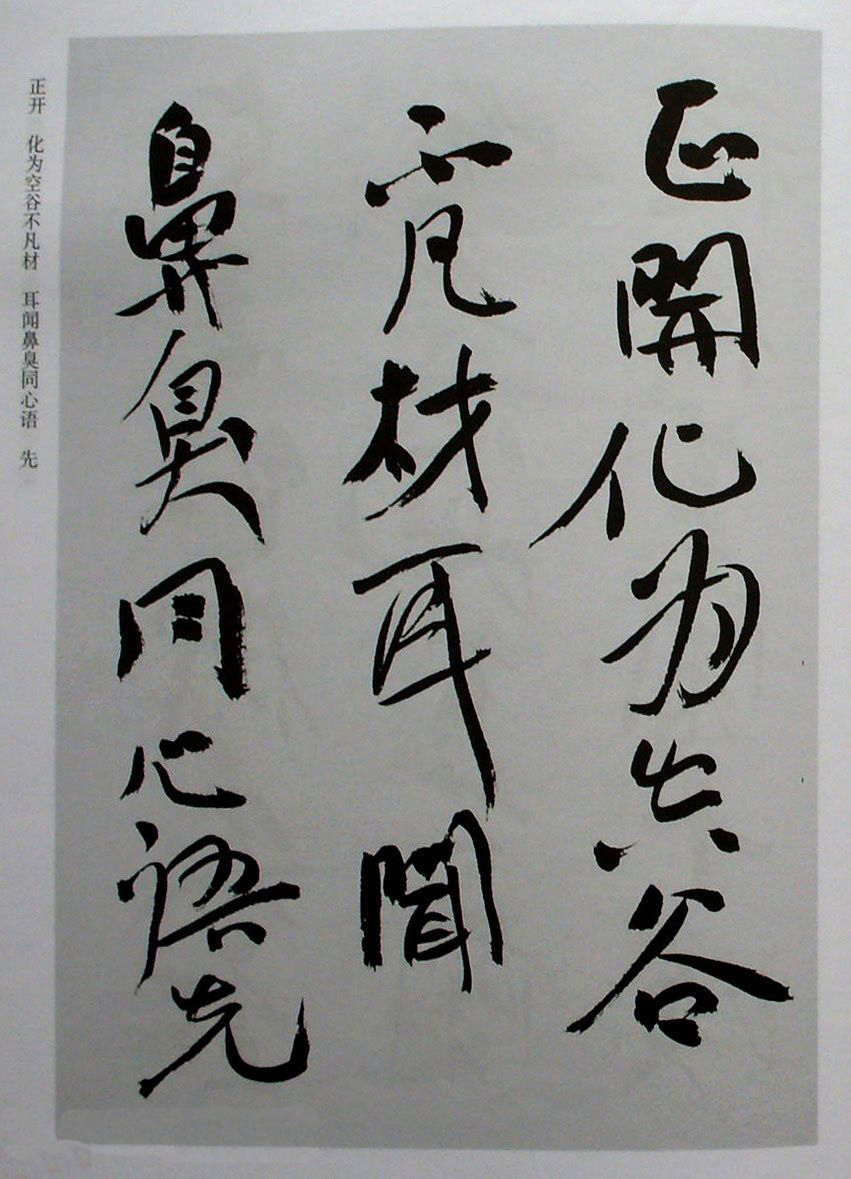 正開化为空谷
不凡材耳聞
鼻臭同心語先
正开 化为空谷不凡材 耳闻鼻臭同心语 先